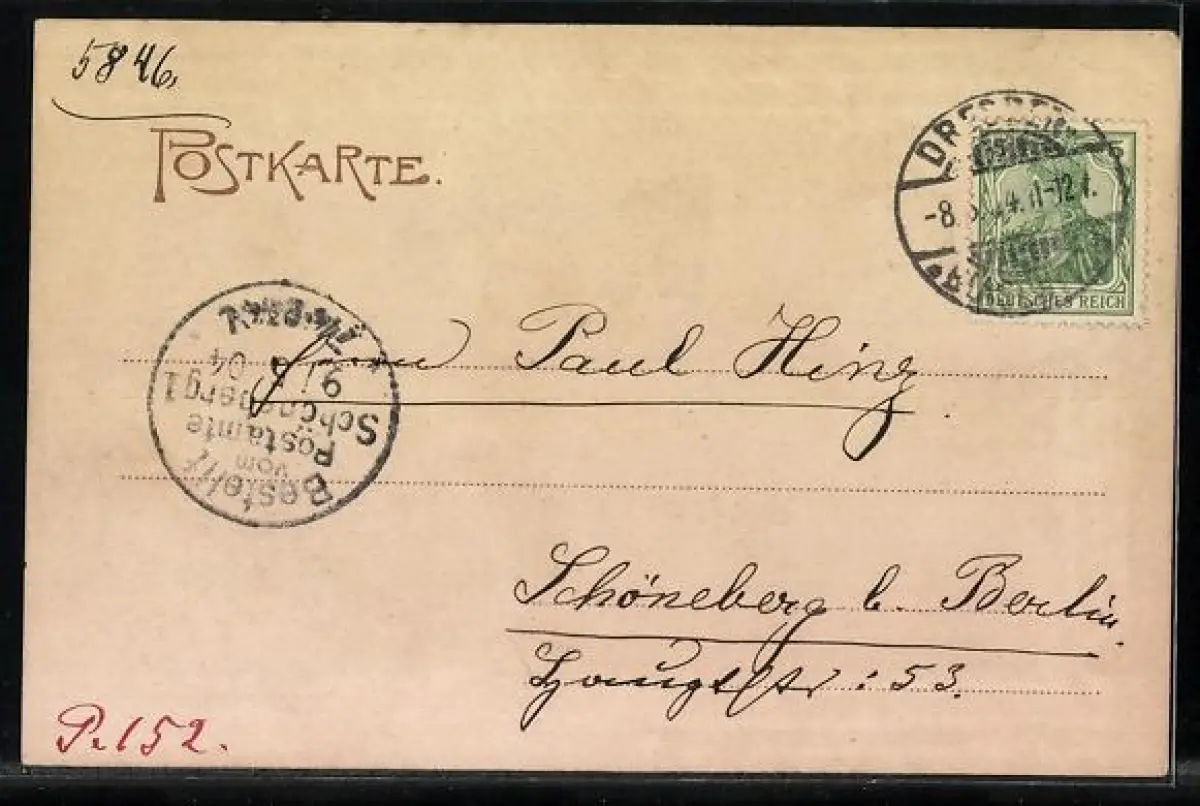 5846,
POSTKARTE.
DRESDEN
5
-8. 4. 11-12 V.
DEUTSCHES REICH
Herrn Paul Hinz
Bestellt
vom
Postamte
Schöneberg 1
9 04
Schöneberg b. Berlin.
Hauptstr: 53.
P. 152.